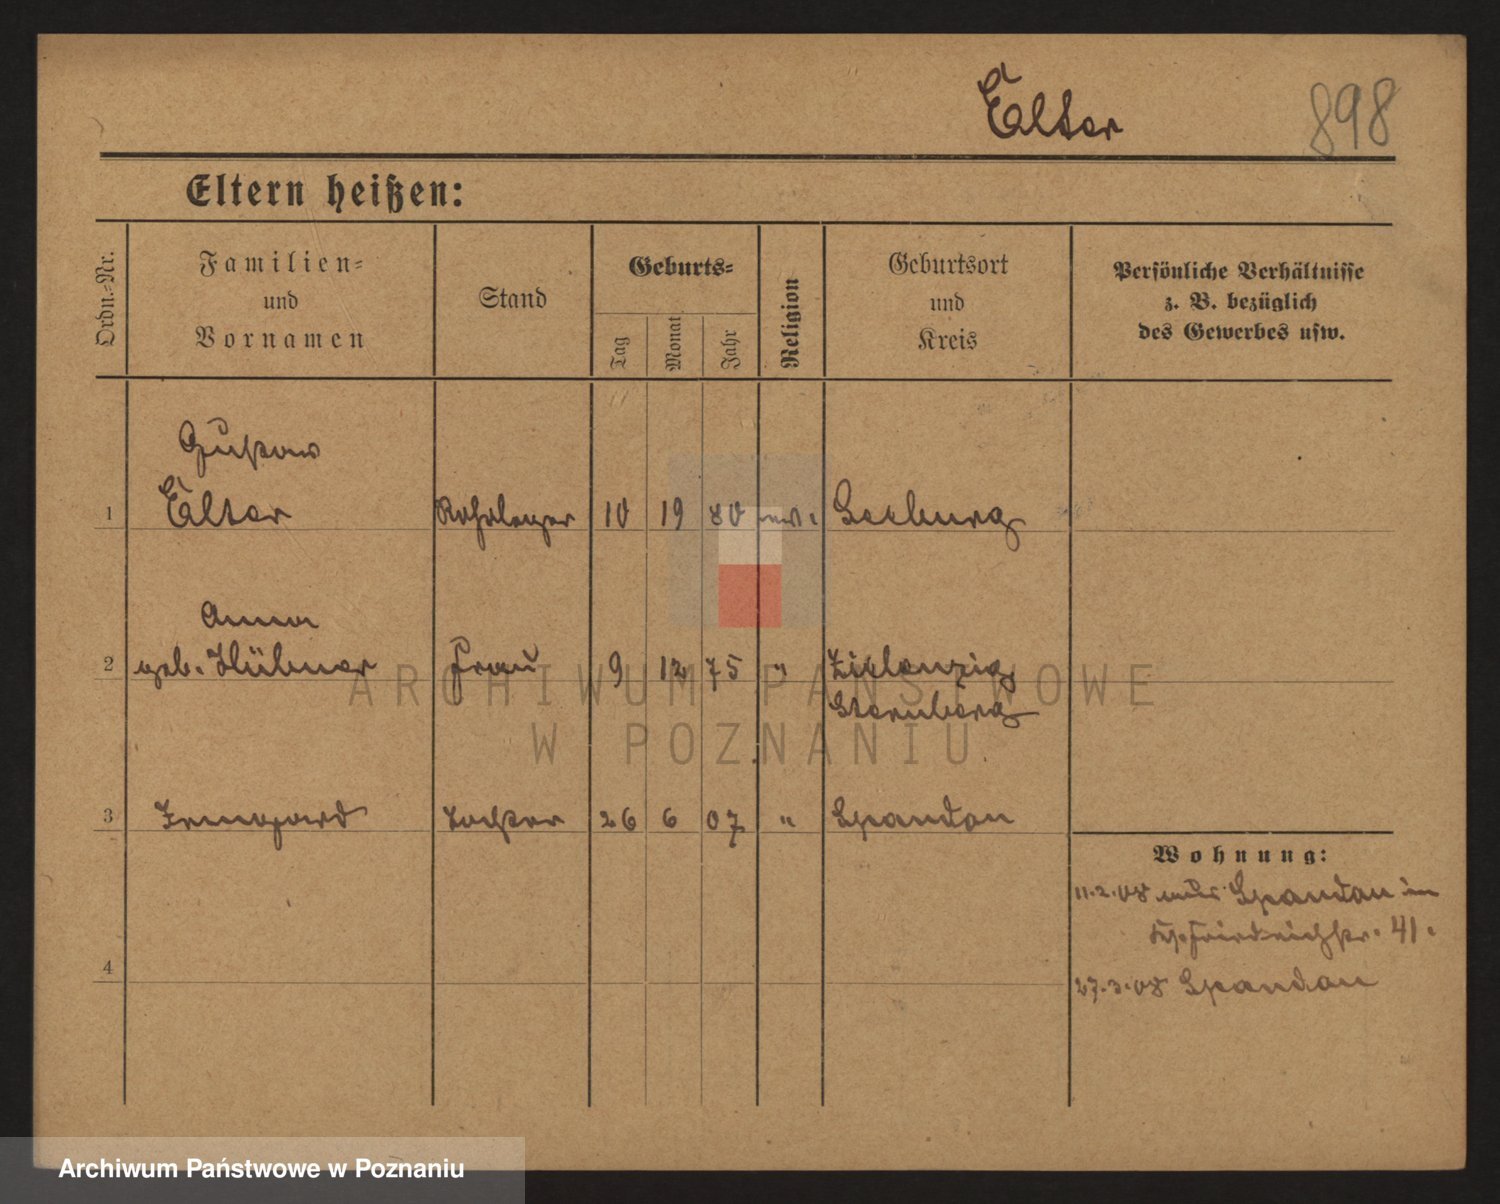 Elter
898
Eltern heißen:
Ordn.-Nr.
Familien-
und
Vornamen
Stand
Geburts-
Tag
Monat
Jahr
Religion
Geburtsort
und
Kreis
Persönliche Verhältnisse
z. B. bezüglich
des Gewerbes usw.
Gustav
1 Elter Rohrleger 10 19 80 ev. Seeburg
Anna
2 geb. Hübner Frau 9 12 75 " Zielenzig
Sternberg
3 Irmgard Tochter 26 6 07 " Spandau
Wohnung:
11.2.08 aus Spandau in
Friedrichstr. 41.
4
27.3.08 Spandau
ARCHIWUM PAŃSTWOWE
W POZNANIU
Archiwum Państwowe w Poznaniu